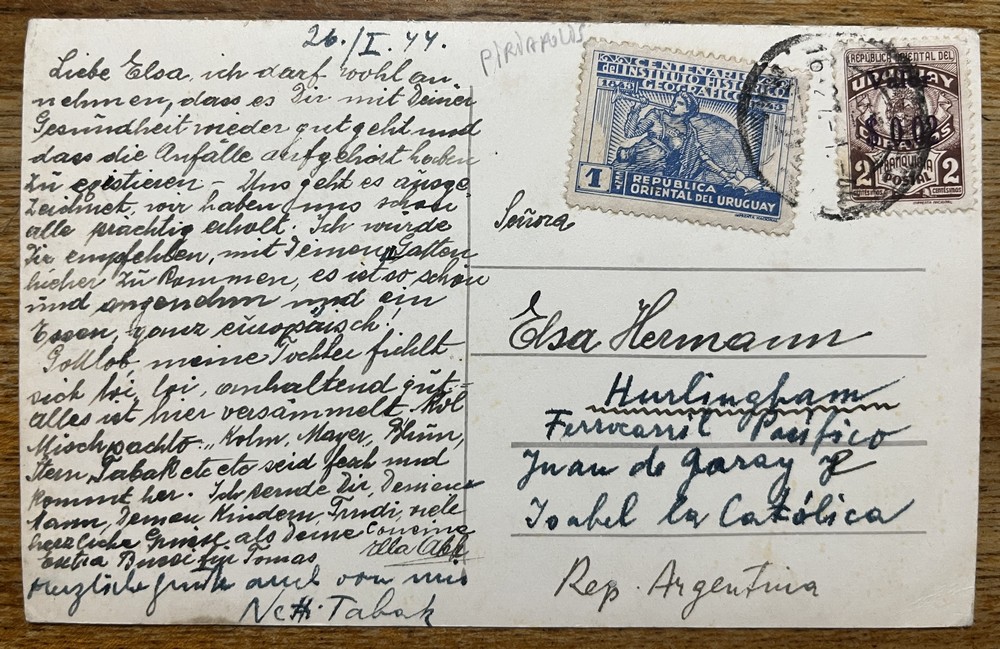 26./I. 44.
PIRIAPOLIS
Liebe Elsa, ich darf wohl an
nehmen, dass es Dir mit Deiner
Gesundheit wieder gut geht und
dass die Anfälle aufgehört haben
zu existieren – Uns geht es ausge
zeichnet, wir haben uns schon
alle prächtig erholt. Ich würde
Dir empfehlen, mit Deinem Gatten
hieher zu kommen, es ist so schön
und angenehm und ein
Essen, ganz europäisch!
Gottlob, meine Tochter fühlt
sich toi, toi, anhaltend gut –
alles ist hier versammelt. Kol
Mischpacho „ Kolm, Mayer, Blum,
Stern, Tabak etc etc seid fesch und
kommt her. Ich sende Dir, Deinem
Mann, Deinen Kindern, Trudi, viele
herzliche Grüsse als Deine Cousine
Extra Bussi für Tomas
Herzliche Grüße auch von uns
Tabak
CENTENARIO
del INSTITUTO HISTORICO
GEOGRAFICO
1843
1943
1
REPUBLICA
ORIENTAL DEL URUGUAY
IMPRENTA NACIONAL
REPUBLICA ORIENTAL DEL
URUGUAY
$ 0.02
FRANQUICIA
POSTAL
2 2
CENTESIMOS CENTESIMOS
IMPRENTA NACIONAL
Señora
Elsa Hermann
Hurlingham
Ferrocarril Pacifico
Juan de Garay y
Isabel la Católica
Rep. Argentina